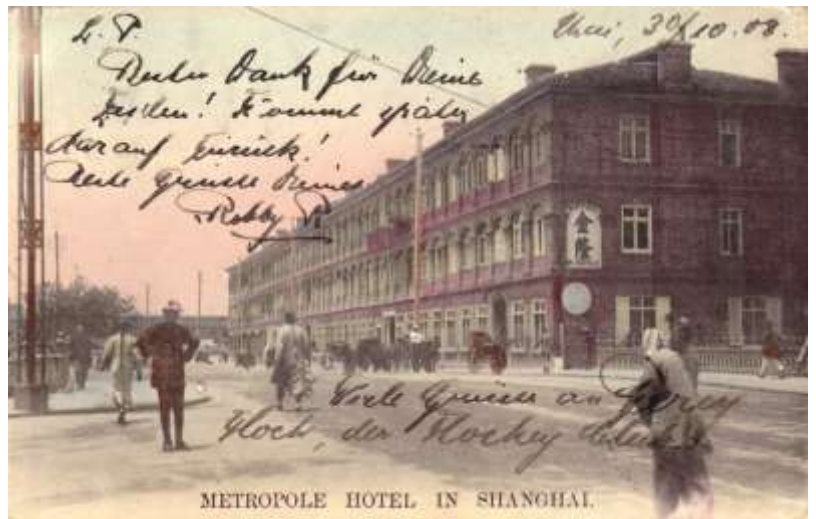 30/10.08.
L. P.
Besten Dank für Deine
Zeilen! Komme später
darauf zurück!
Beste Grüsse Deines
Robby
金隆
Viele Grüsse an
Hoch, der Hockey
METROPOLE HOTEL IN SHANGHAI.